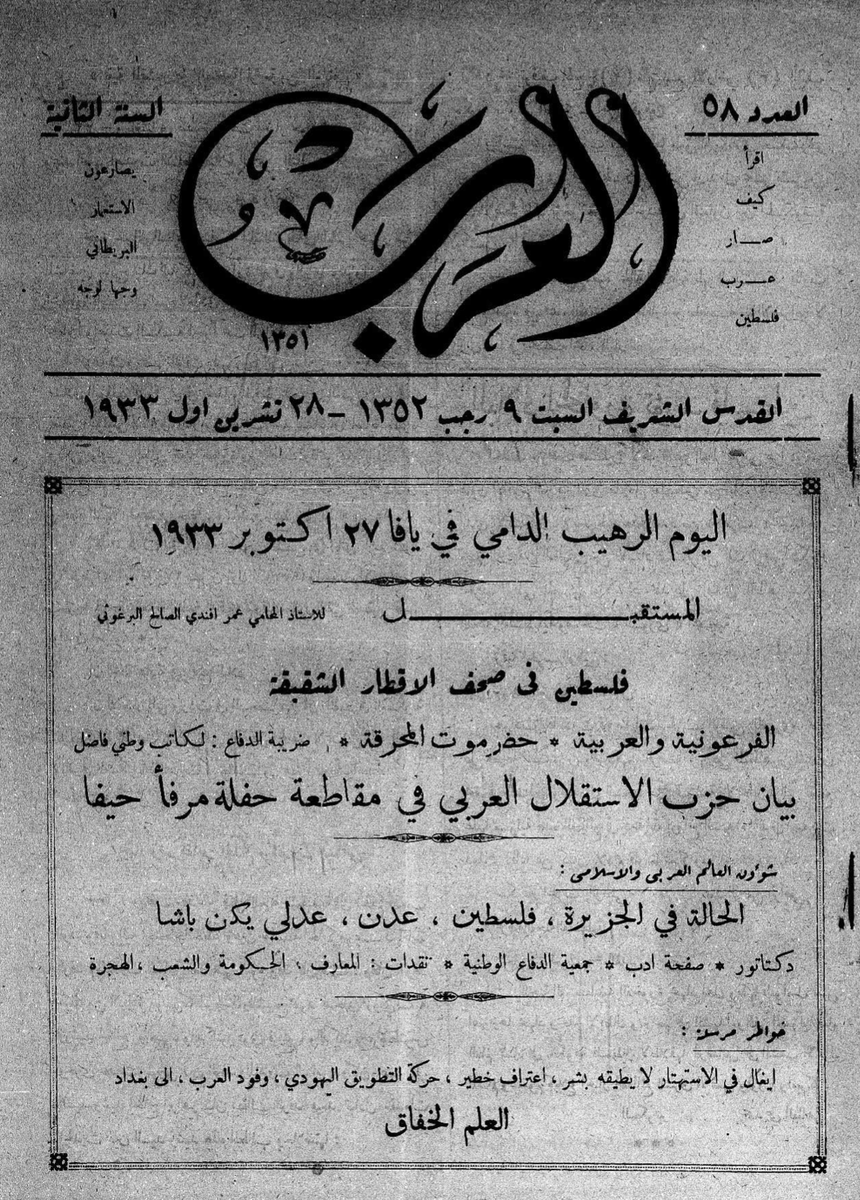 العدد ٥٨
السنة الثانية
العرب
١٣٥١
اقرأ
كيف
صـــار
عـــرب
فلسطين
يصارعون
الاستعمار
البريطاني
وجها لوجه
القدس الشريف السبت ٩ رجب ١٣٥٢ – ٢٨ تشرين اول ١٩٣٣
اليوم الرهيب الدامي في يافا ٢٧ اكتوبر ١٩٣٣
المستقبـــــل للاستاذ المحامي عمر افندي الصالح البرغوثي
فلسطين في صحف الاقطار الشقيقة
الفرعونية والعربية * حضرموت المحرقة * ضريبة الدفاع : لكاتب وطني فاضل
بيان حزب الاستقلال العربي في مقاطعة حفلة مرفأ حيفا
شؤون العالم العربي والاسلامي :
الحالة في الجزيرة ، فلسطين ، عدن ، عدلي يكن باشا
دكتاتور * صفحة ادب * جمعية الدفاع الوطنية * نقدات : المعارف ، الحكومة والشعب ، الهجرة
خواطر مرسلة :
ايغال في الاستهتار لا يطيقه بشر ، اعتراف خطير ، حركة التطويق اليهودي ، وفود العرب ، الى بغداد
العلم الخفاق